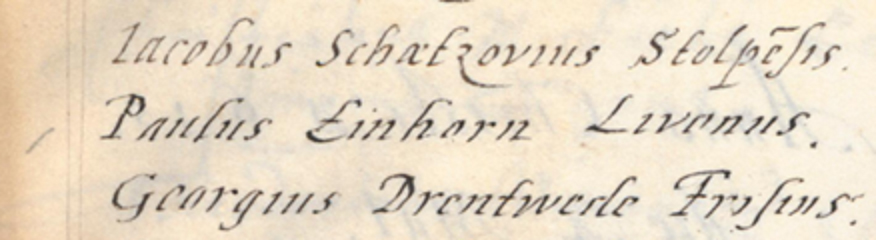 Iacobus Schætzovius Stolpēsis.
Paulus Einhorn Livonus.
Georgius Drentwede Frisius.